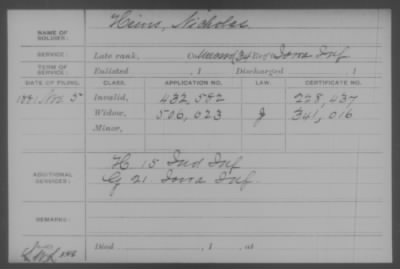 NAME OF SOLDIER: Heins, Nicholas
SERVICE: Late rank, Co. Reg't Iowa Inf
TERM OF SERVICE: Enlisted , 1 Discharged , 1
DATE OF FILING. CLASS. APPLICATION NO. LAW. CERTIFICATE NO.
5 Invalid, 432,582 228,437
Widow, 506,023 341,016
Minor,
ADDITIONAL SERVICES: H 15 Ind Inf
G 21 Iowa Inf.
REMARKS:
Died , 1 , at